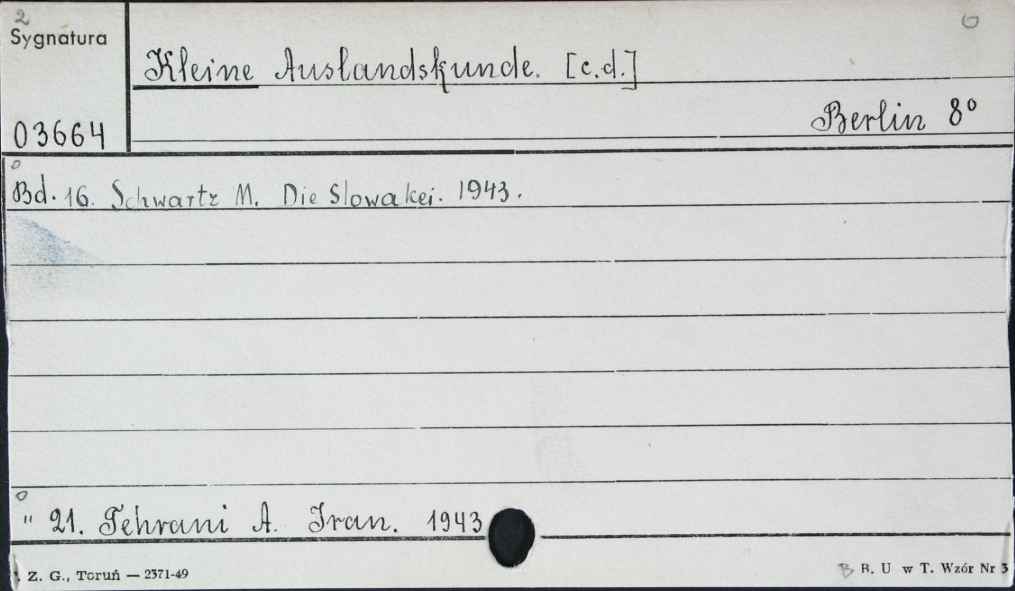 2
Sygnatura
Kleine Auslandskunde. [c.d.]
Berlin 8°
03664
Bd. 16. Schwartz M. Die Slowakei. 1943.
" 21. Tehrani A. Iran. 1943
Z. G., Toruń — 2371-49
B. U w T. Wzór Nr 3